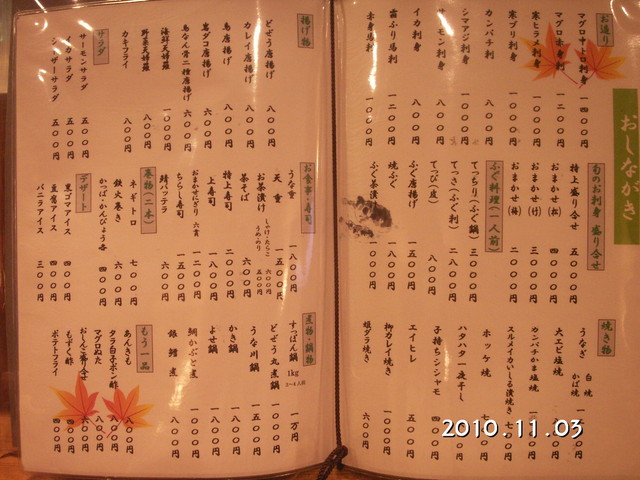 おしながき
お造り
マグロ中トロ刺身 一四〇〇円
マグロ赤身刺身 一二〇〇円
寒ヒラメ刺身 一〇〇〇円
寒ブリ刺身 一〇〇〇円
カンパチ刺 八〇〇円
シマアジ刺 一〇〇〇円
サーモン刺 八〇〇円
イカ刺身 八〇〇円
霜ふり馬刺 一二〇〇円
赤身馬刺 一〇〇〇円
旬のお刺身 盛り合せ
特上盛り合せ 五〇〇〇円
おまかせ(松) 四〇〇〇円
おまかせ(竹) 三〇〇〇円
おまかせ(梅) 二〇〇〇円
ふぐ料理(一人前)
てっちり(ふぐ鍋) 三〇〇〇円
てっさ(ふぐ刺) 一八〇〇円
てっぴ(皮) 八〇〇円
ふぐ唐揚げ
焼ふぐ
ふぐ茶漬 一〇〇〇円
焼き物
うなぎ 白焼 かば焼
大エビ塩焼
カンパチかま塩焼
スルメイカいしる漬焼き 七〇〇円
ホッケ焼
ハタハタ一夜干し
子持ちシシャモ 四〇〇円
エイヒレ 五〇〇円
柳カレイ焼き 一〇〇〇円
銀ダラ焼き 六〇〇円
揚げ物
どぜう唐揚げ 八〇〇円
カレイ唐揚げ 八〇〇円
鳥唐揚げ 八〇〇円
岩ダコ唐揚げ 六〇〇円
鳥なん骨二種唐揚げ 六〇〇円
海鮮天婦羅 一〇〇〇円
野菜天婦羅 八〇〇円
カキフライ 八〇〇円
サラダ
サーモンサラダ 五〇〇円
イカサラダ 五〇〇円
シーザーサラダ 五〇〇円
お食事・寿司
うな重 一八〇〇円
天重 一五〇〇円
お茶漬け しゃけ・たらこ 六〇〇円 うめ・のり 五〇〇円
茶そば 六〇〇円
特上寿司 二〇〇〇円
上寿司 一八〇〇円
おまかせにぎり 六貫 一二〇〇円
ちらし寿司 一五〇〇円
鯖バッテラ 六〇〇円
巻物(二本)
ネギトロ 七〇〇円
鉄火巻き 六〇〇円
かっぱ・かんぴょう各 四〇〇円
デザート
黒ゴマアイス 四〇〇円
豆腐アイス 四〇〇円
バニラアイス 三〇〇円
煮物・鍋物
すっぽん鍋 1kg 3~4人前 一万円
どぜう丸煮鍋 一〇〇〇円
うな川鍋 一五〇〇円
かき鍋 一〇〇〇円
よせ鍋 一〇〇〇円
鯛かぶと煮 八〇〇円
銀鱈煮 八〇〇円
もう一品
あんきも 八〇〇円
タラ白子ポン酢 八〇〇円
マグロぬた 六〇〇円
おしんこ盛り合せ 六〇〇円
もずく酢 四〇〇円
ポテトフライ 四〇〇円
2010.11.03